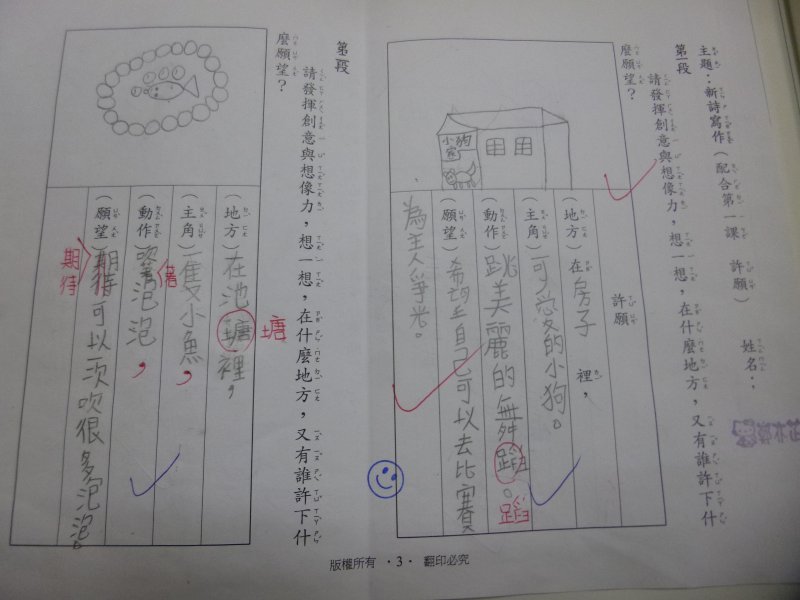 主題：新詩寫作（配合第一課　許願）　姓名：
第一段
請發揮創意與想像力，想一想，在什麼地方，又有誰許下什
麼願望？
小狗
家
許願
（地方）在房子裡，
（主角）可愛的小狗。
（動作）跳美麗的舞蹈。
蹈
（願望）希望自己可以去比賽
為主人爭光。
第二段
請發揮創意與想像力，想一想，在什麼地方，又有誰許下什
麼願望？
（地方）在池塘裡，
塘
（主角）一隻小魚，
（動作）吹著泡泡，
著
（願望）期待可以一次吹很多泡泡。
期待
版權所有 ·3· 翻印必究